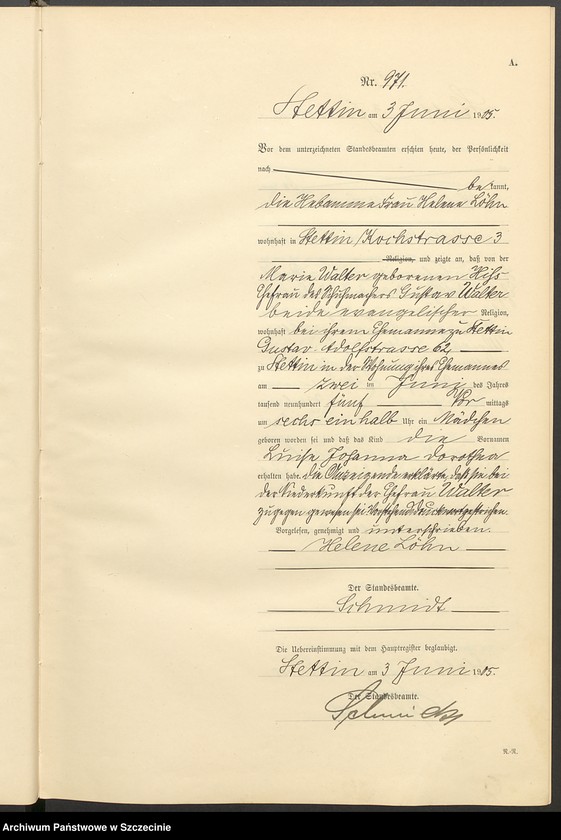 A.
Nr. 971.
Stettin am 3 Juni 1905.
Vor dem unterzeichneten Standesbeamten erschien heute, der Persönlichkeit
nach
bekannt,
die Hebamme Frau Helene Löhn
wohnhaft in Stettin, Kochstrasse 3
Religion, und zeigte an, daß von der
Marie Walter geborenen
Ehefrau des Schuhmachers Gustav Walter
beide evangelischer Religion,
wohnhaft bei ihrem Ehemanne zu Stettin
Gustav-Adolfstrasse 62,
zu Stettin in der Wohnung ihres Ehemannes
am zwei ten Juni des Jahres
tausend neunhundert fünf Vor mittags
um sechs ein halb Uhr ein Mädchen
geboren worden sei und daß das Kind die Vornamen
Luise Johanna Dorothea
erhalten habe. Die Anzeigende erklärte, daß sie bei
der Niederkunft der Ehefrau Walter
zugegen gewesen sei. Vorstehend Druckwort gestrichen.
Vorgelesen, genehmigt und unterschrieben.
Helene Löhn
Der Standesbeamte.
Schmidt
Die Uebereinstimmung mit dem Hauptregister beglaubigt.
Stettin am 3 Juni 1905.
Der Standesbeamte.
R.-R.
Archiwum Państwowe w Szczecinie